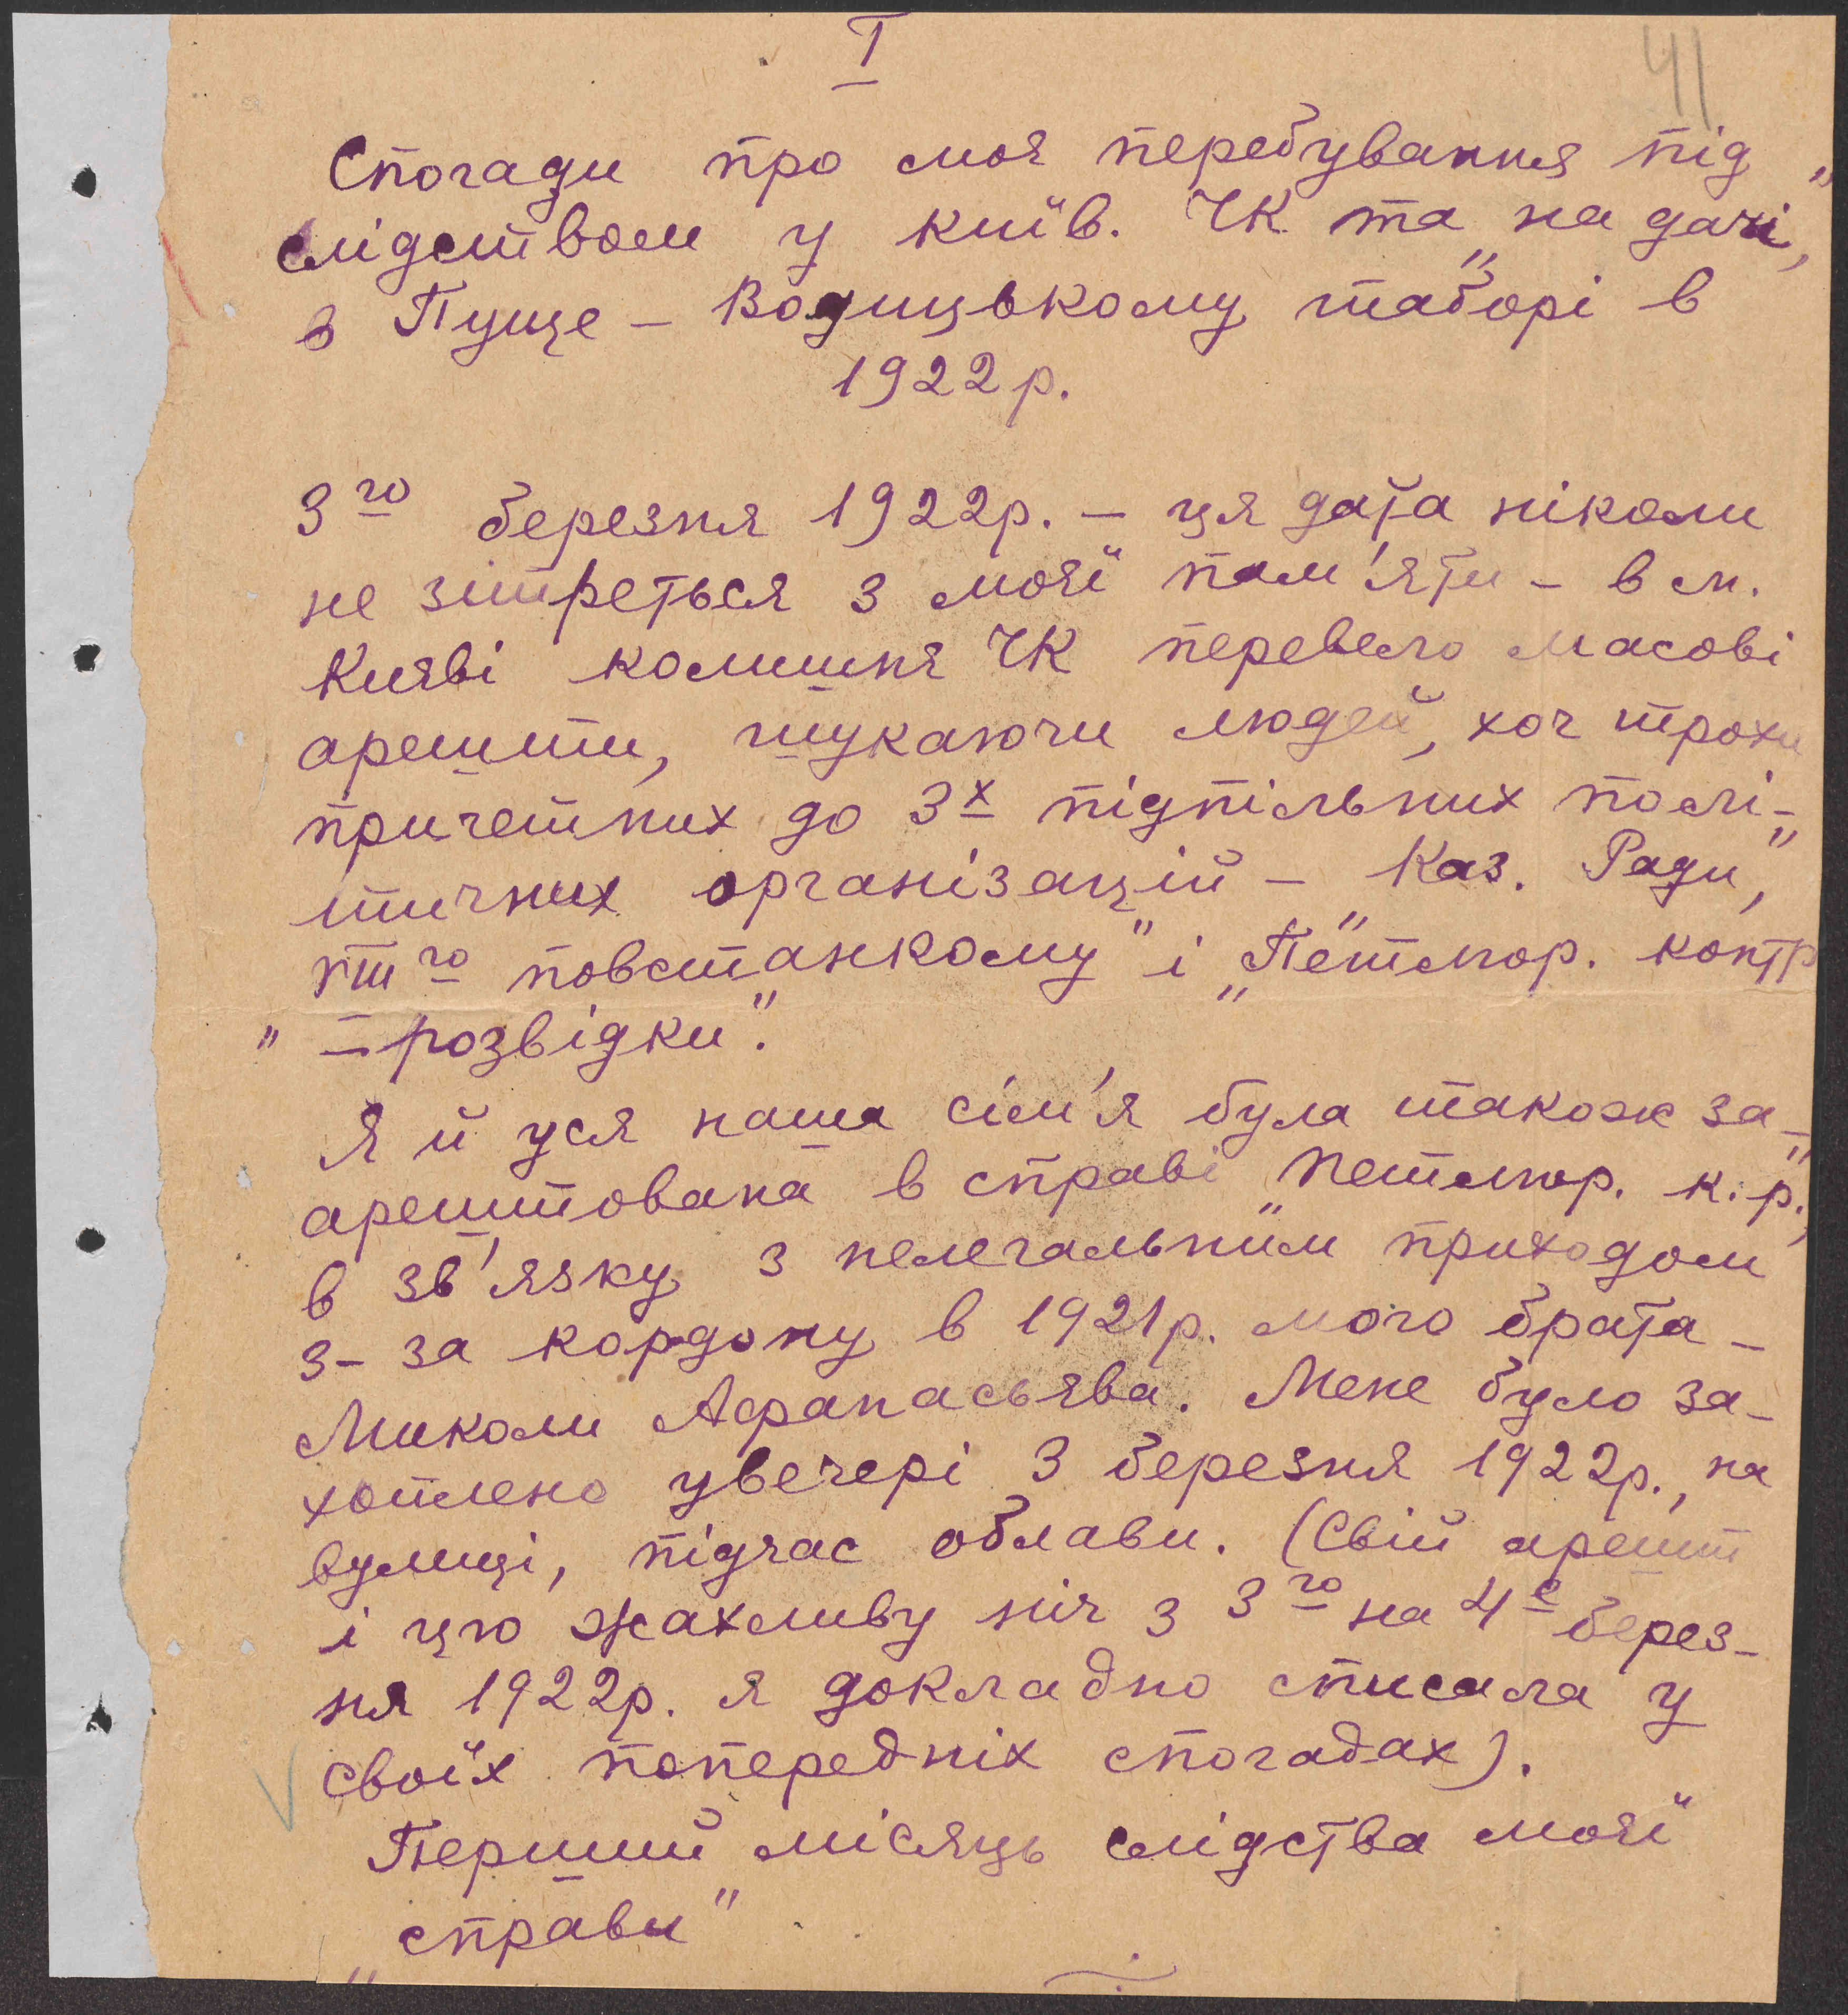 I
41
Спогади про моє перебування під
слідством у київ. ЧК та „на дачі”,
в Пуще – Водицькому таборі в
1922 р.
3го березня 1922р. – ця дата ніколи
не зітреться з моєї пам'яти – в м.
Києві колишня ЧК перевело масові
арешти, шукаючи людей, хоч трохи
причетних до 3х підпільних полі-
тичних організацій – „Каз. Ради”,
го повстанкому” і „Петлюр. контр
" – розвідки”.
Я й уся наша сім'я була також за-
арештована в справі „Петлюр. к.р.”,
в зв'язку з нелегальним приходом
з-за кордону в 1921р. мого брата –
Миколи Афанасьєва. Мене було за-
хоплено увечері 3 березня 1922р., на
вулиці, підчас облави. (Свій арешт
і цю жахливу ніч з 3го на 4е берез-
ня 1922р. я докладно списала у
своїх попередніх спогадах).
Перший місяць слідства моєї
„справи”